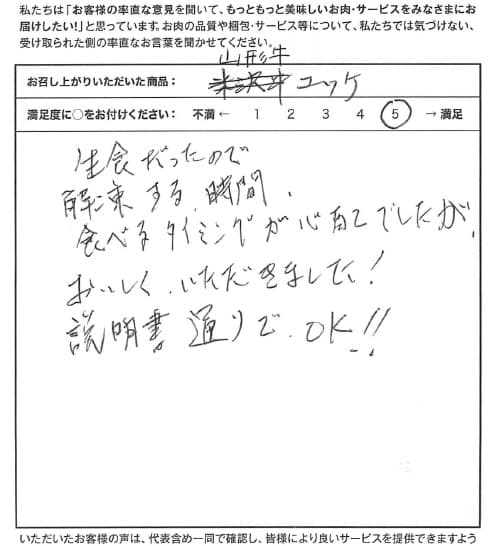 私たちは「お客様の率直な意見を聞いて、もっともっと美味しいお肉・サービスをみなさまにお
届けしたい!」と思っています。お肉の品質や梱包・サービス等について、私たちでは気づけない、
受け取られた側の率直なお言葉を聞かせてください。
山形牛
お召し上がりいただいた商品： 米沢牛 ユッケ
満足度に○をお付けください： 不満 ← 1 2 3 4 5 → 満足
生食だったので
解凍する時間、
食べるタイミングが心配でしたが、
おいしく、いただきました!
説明書通りで、OK!!
いただいたお客様の声は、代表含め一同で確認し、皆様により良いサービスを提供できますよう